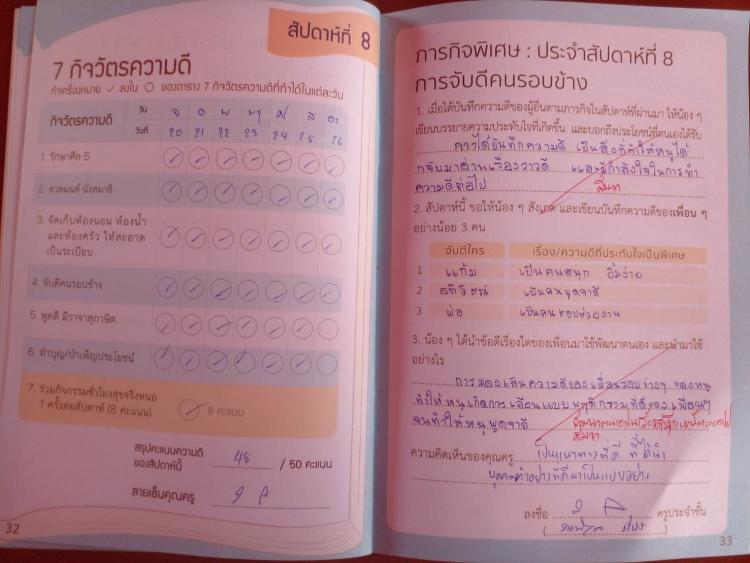 สัปดาห์ที่ 8
7 กิจวัตรความดี
ทำเครื่องหมาย ✓ ลงใน ○ ของตาราง 7 กิจวัตรความดีที่ทำได้ในแต่ละวัน
กิจวัตรความดี
วัน จ อ พ พฤ ศ ส อา
วันที่ 20 21 22 23 24 25 26
1. รักษาศีล 5
2. สวดมนต์ นั่งสมาธิ
3. จัดเก็บห้องนอน ห้องน้ำ
และห้องครัว ให้สะอาด
เป็นระเบียบ
4. จับดีคนรอบข้าง
5. พูดดี มีวาจาสุภาษิต
6. ทำบุญ/บำเพ็ญประโยชน์
7. ร่วมกิจกรรมชั่วโมงสุขจริงหนอ
1 ครั้งต่อสัปดาห์ (8 คะแนน)
8 คะแนน
สรุปคะแนนความดี
ของสัปดาห์นี้ 48 / 50 คะแนน
ลายเซ็นคุณครู
32
ภารกิจพิเศษ : ประจำสัปดาห์ที่ 8
การจับดีคนรอบข้าง
1. เมื่อได้บันทึกความดีของผู้อื่นตามภารกิจในสัปดาห์ที่ผ่านมา ให้น้อง ๆ
เขียนบรรยายความประทับใจที่เกิดขึ้น และบอกถึงประโยชน์ที่ตนเองได้รับ
การได้บันทึกความดี เป็นสิ่งที่ทำให้หนูได้
กลับมาอ่านเรื่องราวดี และมีกำลังใจในการทำ
ความดีต่อไป
2. สัปดาห์นี้ ขอให้น้อง ๆ สังเกต และเขียนบันทึกความดีของเพื่อน ๆ
อย่างน้อย 3 คน
จับดีใคร เรื่อง/ความดีที่ประทับใจเป็นพิเศษ
1 แก้ม เป็นคนสนุก ยิ้มง่าย
2 เป็นคนพูดจาดี
3 พ่อ เป็นคนชอบช่วยงาน
3. น้อง ๆ ได้นำข้อดีเรื่องใดของเพื่อนมาใช้พัฒนาตนเอง และนำมาใช้
อย่างไร
การมองเห็นความดีของเพื่อนรอบข้างๆ ของหนู
ทำให้หนูเกิดการเลียนแบบพฤติกรรมที่ดีของเพื่อนๆ
จนทำให้หนูพูดจาดี
ความคิดเห็นของคุณครู เป็นแนวทางที่ดี ที่ได้นำ
บุคคลตัวอย่างที่ดีมาเป็นแบบอย่าง
ลงชื่อ ครูประจำชั้น
33